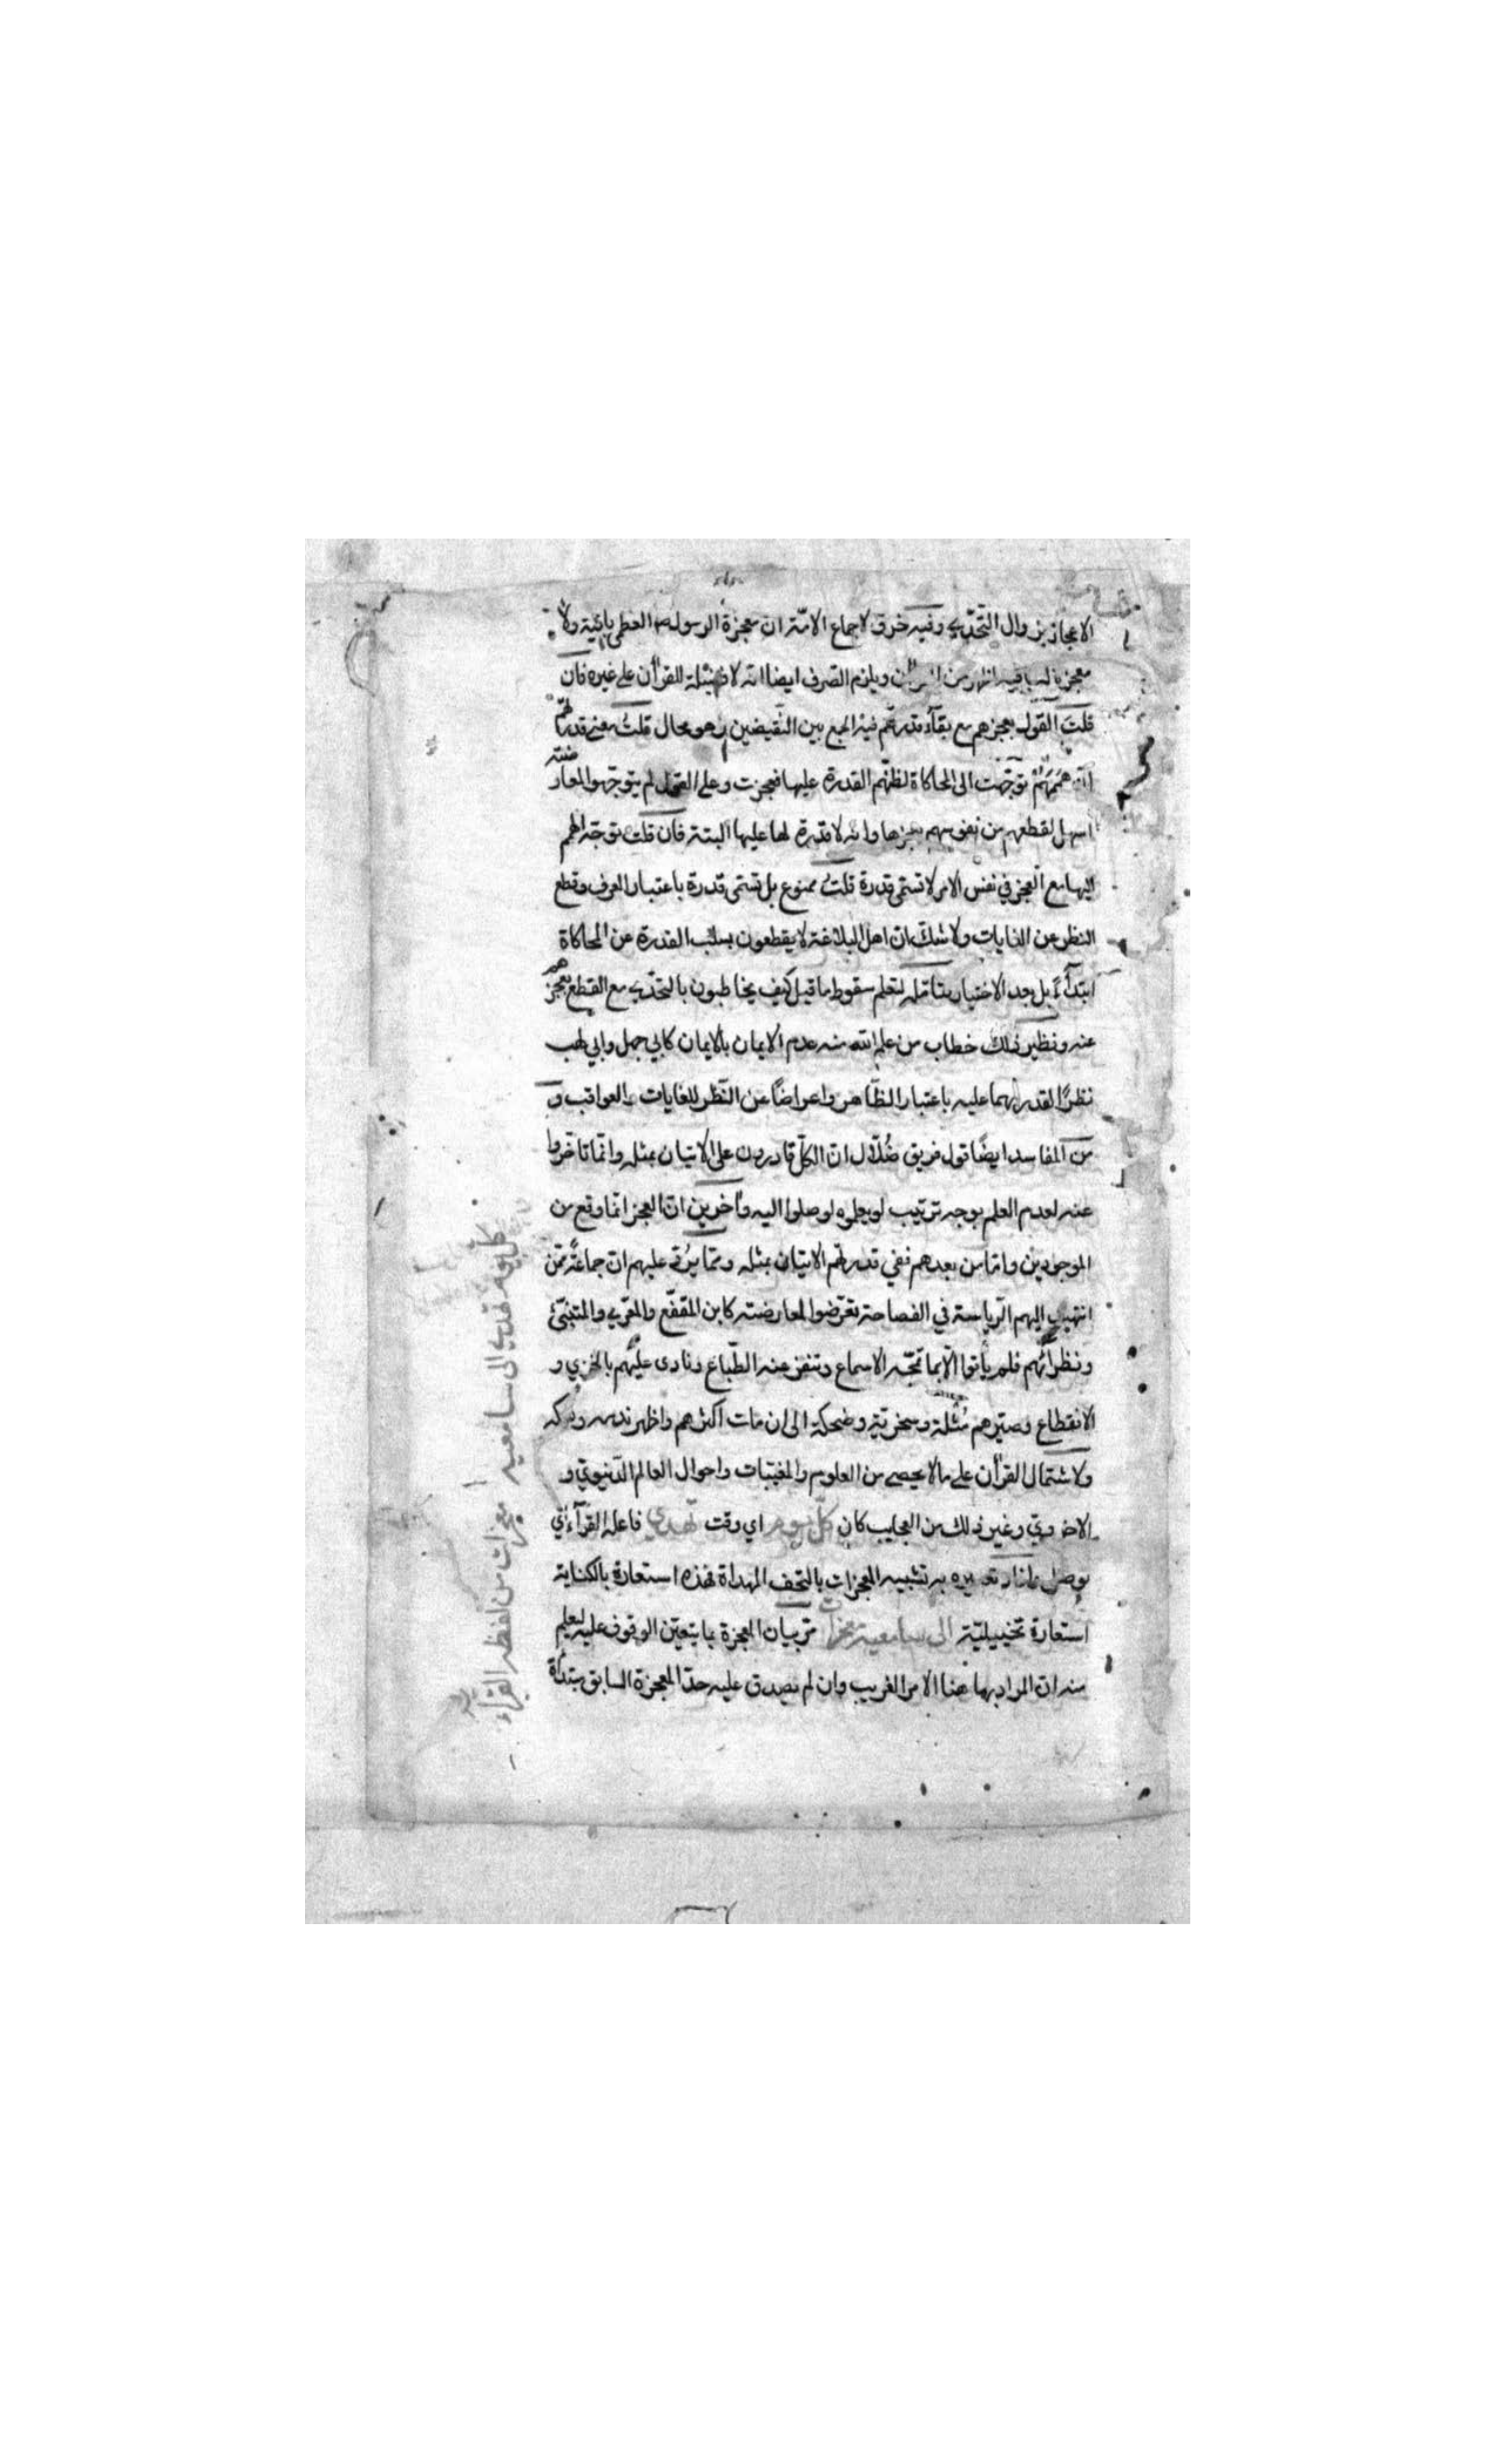 الاعجاز بزوال التحدّي وفيه خرق لاجماع الامّة ان معجزة الرسول العظمى باقية ولا
معجزة له باقية اظهر من القرآن ويلزم الصرف ايضا انه لا فضيلة للقرآن على غيره فان
قلتَ القول بعجزهم مع بقاء قدرتهم فيه الجمع بين النّقيضين وهو محال قلتُ معنى قدرتهم
انّ هممهم توجّهت الى المحاكاة لظنّهم القدرة عليها فعجزت وعلى القول لم يتوجّهوا لمعارضته
اسهل لقطعهم من نفوسهم بعجزها وانه لا قدرة لها عليها البتة فان قلت توجّه الهمم
اليها مع العجز في نفس الامر لا تسمّى قدرة قلتُ ممنوع بل تسمّى قدرة باعتبار العرف وقطع
النظر عن الغايات ولا شكّ ان اهل البلاغة لا يقطعون بسلب القدرة عن المحاكاة
ابتداءً بل بعد الاختبار بتامّله لتعلم سقوط ما قيل كيف يخاطبون بالتحدّي مع القطع بعجزهم
عنه ونظير ذلك خطاب من علم الله منه عدم الايمان بالايمان كابي جهل وابي لهب
نظرًا لقدرتهما عليه باعتبار الظّاهر واعراضًا عن النّظر للغايات والعواقب و
من المفاسد ايضًا قول فريق ضُلّال انّ الكلّ قادرون على الاتيان بمثله وانّما تاخّروا
عنه لعدم العلم بوجه ترتيب لو يعلموه لوصلوا اليه وآخرين انّ العجز انما وقع من
الموجودين وامّا من بعدهم ففي قدرتهم الاتيان بمثله وممّا يردّ عليهم انّ جماعةً ممّن
انتهت اليهم الرّياسة في الفصاحة تعرّضوا لمعارضته كابن المقفّع والمعرّي والمتنبّئ
ونظرائهم فلم يأتوا الّا بما تمجّه الاسماع وتنفر عنه الطّباع ونادى عليهم بالخزي و
الانقطاع وصيّرهم مُثلة وسخريّة وضحكة الى ان مات اكثرهم واظهر ندمه
ولاشتمال القرآن على ما لا يحصى من العلوم والمغيّبات واحوال العالم الدّنيويّ و
الاخرويّ وغير ذلك من العجايب كان كلّ يوم اي وقت تهدي فاعله القرّاء اي
توصل به تشبيه المعجزات بالتحف المهداة فهذه استعارة بالكناية
استعارة تخييليّة الى سامعيه معجزات مرّ بيان المعجزة بما يتعيّن الوقوف عليه ليعلم
منه ان المراد بها هنا الامر الغريب وان لم يصدق عليه حدّ المعجزة السابق مبتدأة
كل يوم تهدي الى سامعيه معجزات من لفظه القراء